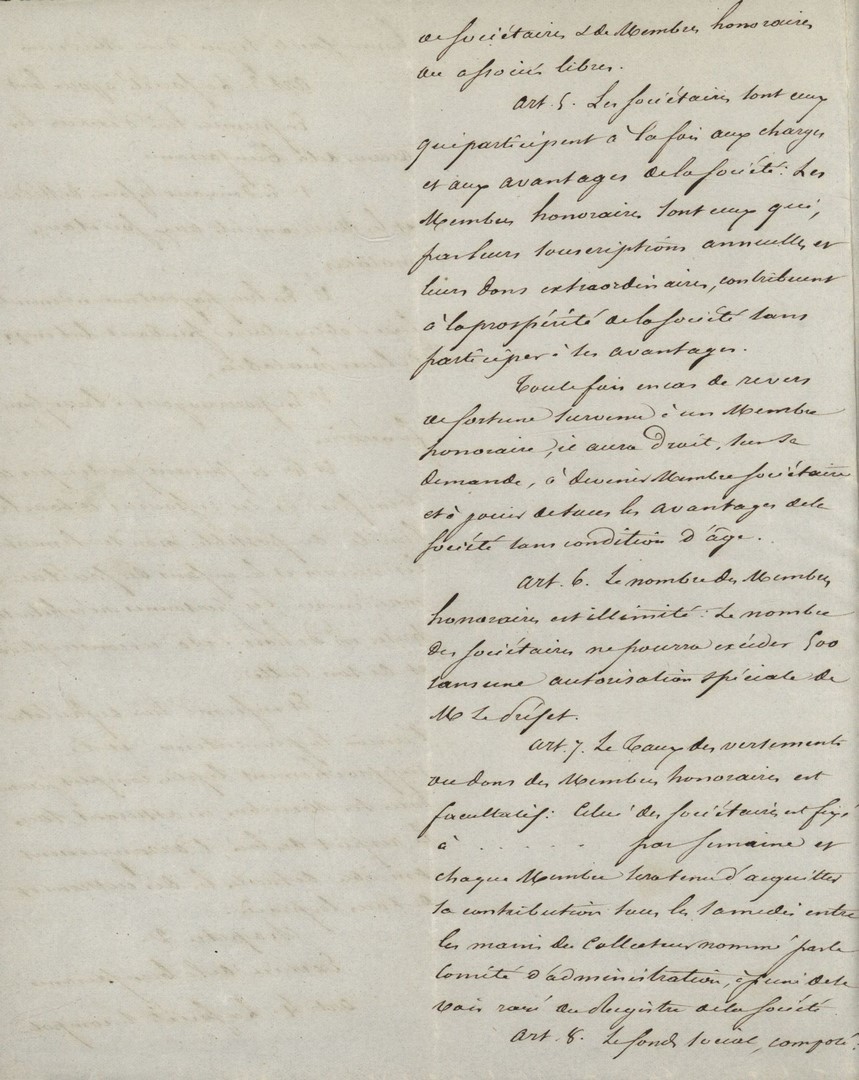 de sociétaires & de Membres honoraires
ou associés libres.
Art. 5. Les sociétaires sont ceux
qui participent à la fois aux charges
et aux avantages de la société: Les
Membres honoraires sont ceux qui,
par leurs souscriptions annuelles et
leurs dons extraordinaires, contribuent
à la prospérité de la société sans
participer à ses avantages.
Toutefois en cas de revers
de fortune survenu à un Membre
honoraire, il aura droit, sur sa
demande, à devenir Membre sociétaire
et à jouir de tous les avantages de la
société sans condition d'âge.
Art. 6. Le nombre des Membres
honoraires est illimité: Le nombre
des sociétaires ne pourra excéder 500
sans une autorisation spéciale de
M. Le Préfet.
Art. 7. Le Taux des versements
ou dons des Membres honoraires est
facultatif: Celui des sociétaires est fixé
à . . . . . . par semaine et
chaque Membre sera tenu d'acquitter
sa contribution tous les samedis entre
les mains du Collecteur nommé par le
Comité d'administration, à peine de se
voir rayé du Registre de la Société
Art. 8. Le fonds social, composé